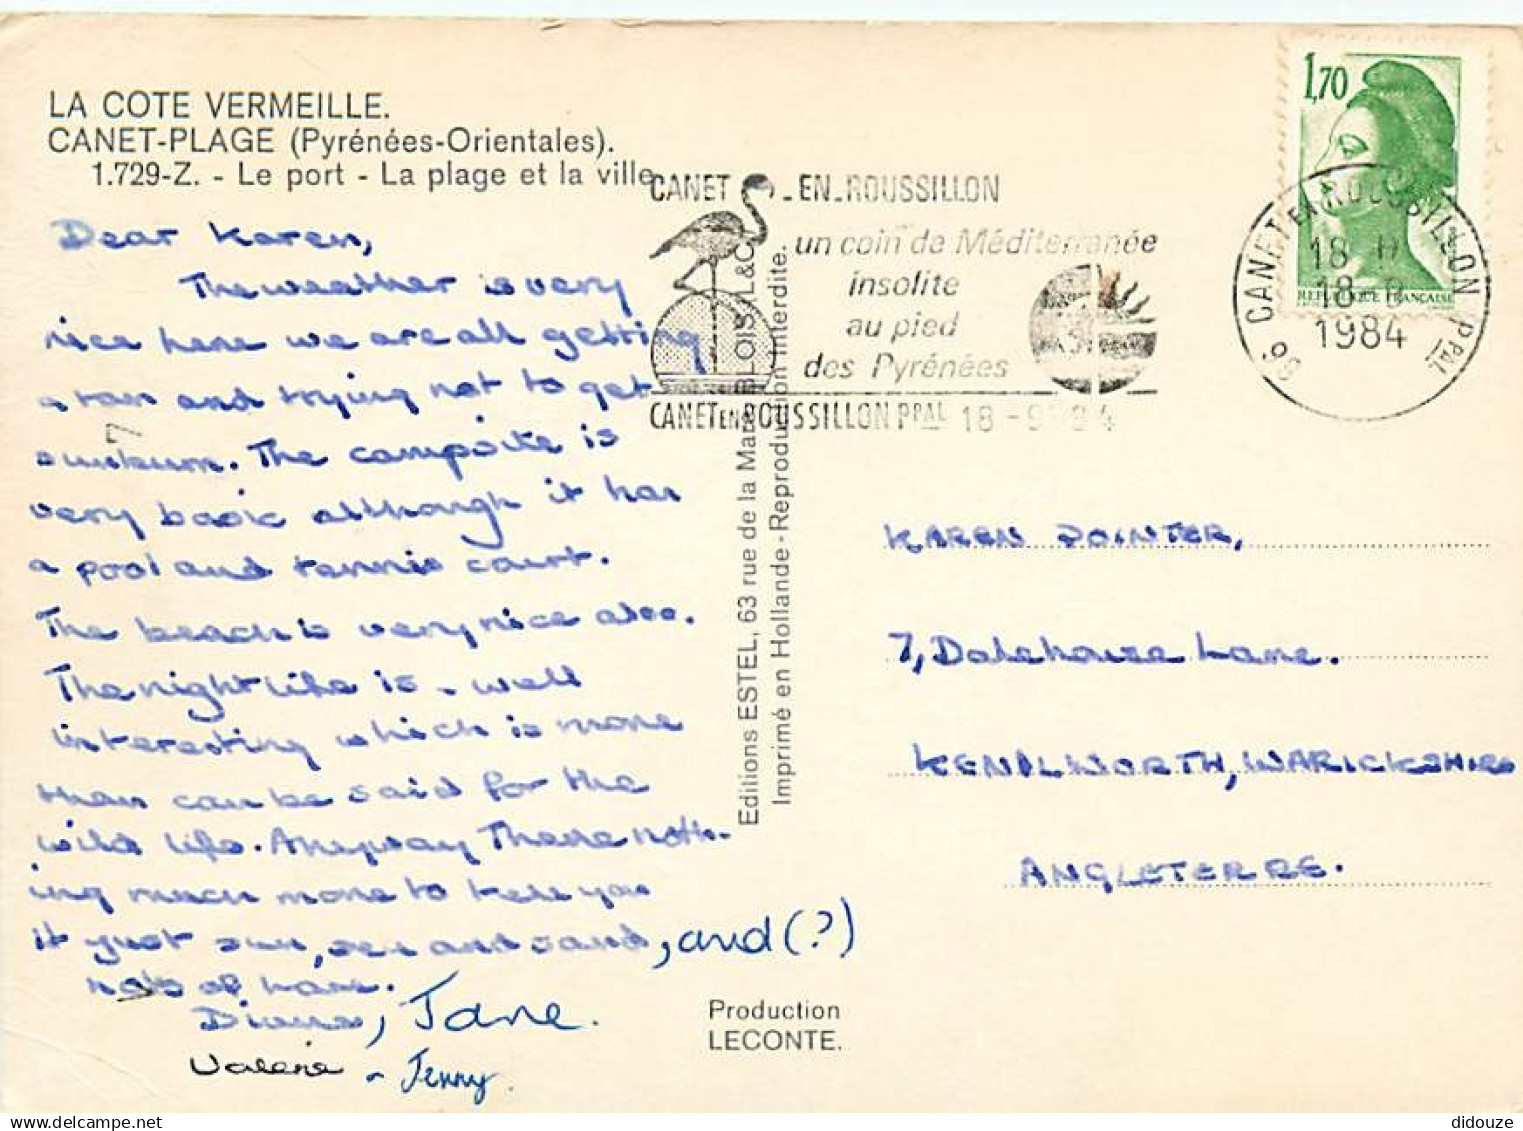 LA COTE VERMEILLE.
CANET-PLAGE (Pyrénées-Orientales).
1.729-Z. - Le port - La plage et la ville
Dear Karen,
The weather is very
nice here we are all getting
a tan and trying not to get
sunburn. The campsite is
very basic although it has
a pool and tennis court.
The beach is very nice also.
The nightlife is - well
interesting which is more
than can be said for the
wild life. Anyway There noth-
ing much more to tell you
it just sun, sea and sand, and (?)
of love.
Diana, Jane.
Valerie ~ Jenny.
Editions ESTEL, 63 rue de la Mare BLOIS L&C.
Imprimé en Hollande - Reproduction Interdite.
Production
LECONTE.
CANET-EN-ROUSSILLON
un coin de Méditerranée
insolite
au pied
des Pyrénées
CANET EN ROUSSILLON PPAL 18-9
1,70
REPUBLIQUE FRANÇAISE
66 CANET EN ROUSSILLON PPAL
18 H
18-
1984
KAREN POINTER,
7, Dalehouse Lane.
KENILWORTH, WARICKSHIRE
ANGLETERRE.
7
didouze